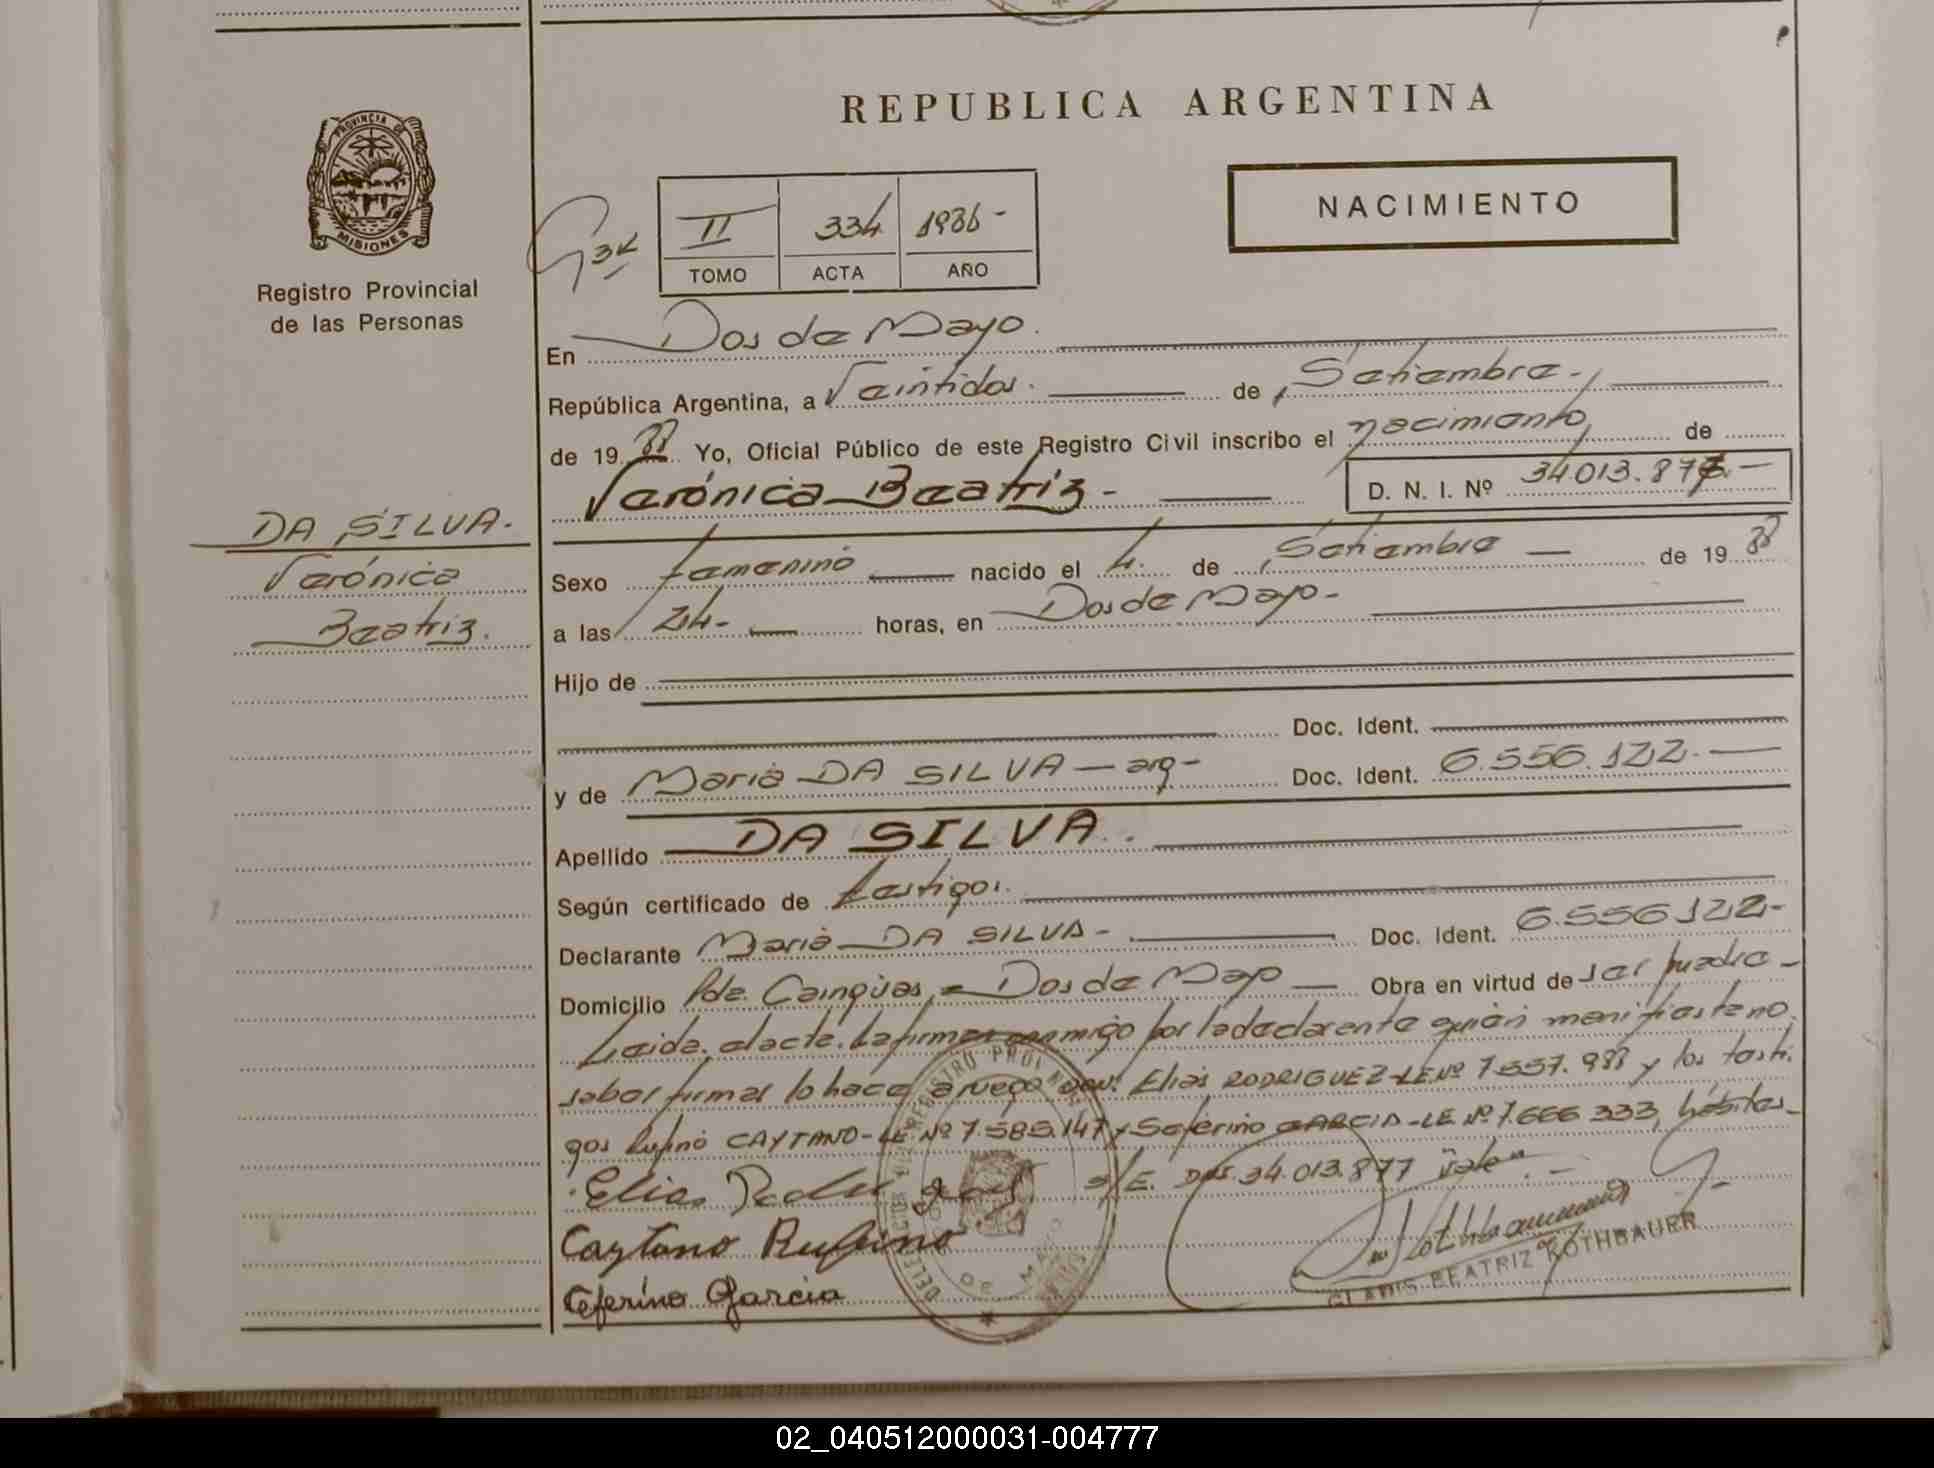 REPUBLICA ARGENTINA
PROVINCIA DE
MISIONES
Registro Provincial
de las Personas
NACIMIENTO
II 334 1988-
TOMO ACTA AÑO
En Dos de Mayo.
República Argentina, a Veintidos. de Setiembre.
de 19 88 Yo, Oficial Público de este Registro Civil inscribo el nacimiento de
Verónica Beatriz- D. N. I. Nº 34.013.877.-
DA SILVA.
Verónica
Beatriz.
Sexo femenino nacido el 4. de Setiembre de 19 88
a las 24- horas, en Dos de Mayo-
Hijo de
Doc. Ident.
y de Maria DA SILVA - arg- Doc. Ident. 6.556.122.-
Apellido DA SILVA.
Según certificado de testigos.
Declarante Maria DA SILVA- Doc. Ident. 6.556.122-
Domicilio Pde. Cainguas, - Dos de Mayo Obra en virtud de ser madre-
Leida, el acta, la firma conmigo por la declarante quién manifiesta no
saber firmar lo hace a ruego don: Elias RODRIGUEZ-LE Nº 7.557.988 y los testi
gos Rufino CAYTANO-LE Nº 7.585.147 y Seferino GARCIA-LE Nº 7.666.333, hábiles-
s/E. DNI. 34.013.877 "Vale". -
Elias Rodriguez
Caytano Rufino
Ceferino Garcia
GLADIS BEATRIZ ROTHBAUER
02_040512000031-004777